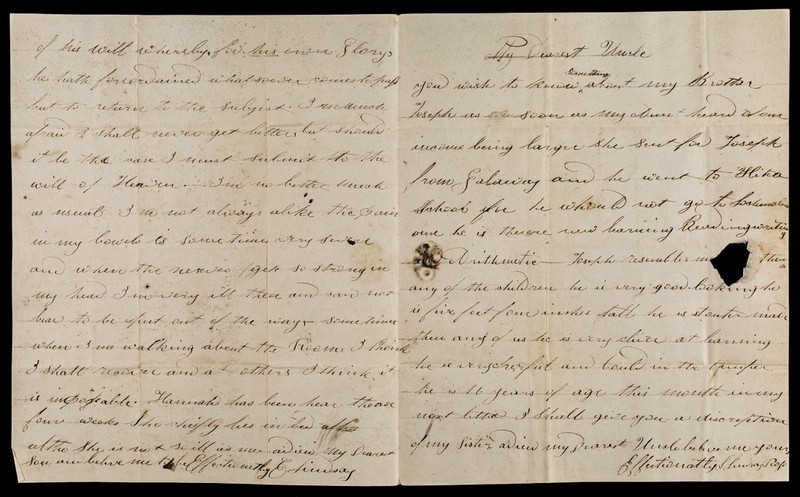 of his will whereby, for his own Glory,
he hath foreordained whatsoever comes to pass
but to return to the Subject. I am much
afraid I shall never get better, but should
it be the case I must submit to the
will of Heaven. I'm no better much
as usual I'm not always alike the Pain
in my bowels is some times very severe
and when the nerves get so strong in
my head I'm very ill then and can not
bear to be spoke out of the way sometimes
when I'm walking about the Room I think
I shall recover and at others I think it
is impossible. Hannah has been hear these
four weeks She chiefly lies in bed
altho She is not so ill as me adieu My Dearest
Son and believe me to be Effectionatly C Lindsay
My Dearest Uncle
you wish to know something about my Brother
Joseph as soon as my Aunt heard of our
income being larger She Sent for Joseph
from Galaway and he went to
School for he whould not go to
one he is theore now learning Reading writing
Arithmetic Joseph resembles m then
any of the children he is very good looking he
is five feet four inches tall he is stouter made
then any of us he is very clever at learning
he is very cheerful and in the temper
he is 16 years of age this month in my
next letter I Shall give you a discreption
of my Sister adieu my Dearest Uncle beleve me yours
Effectionatly Lindsay